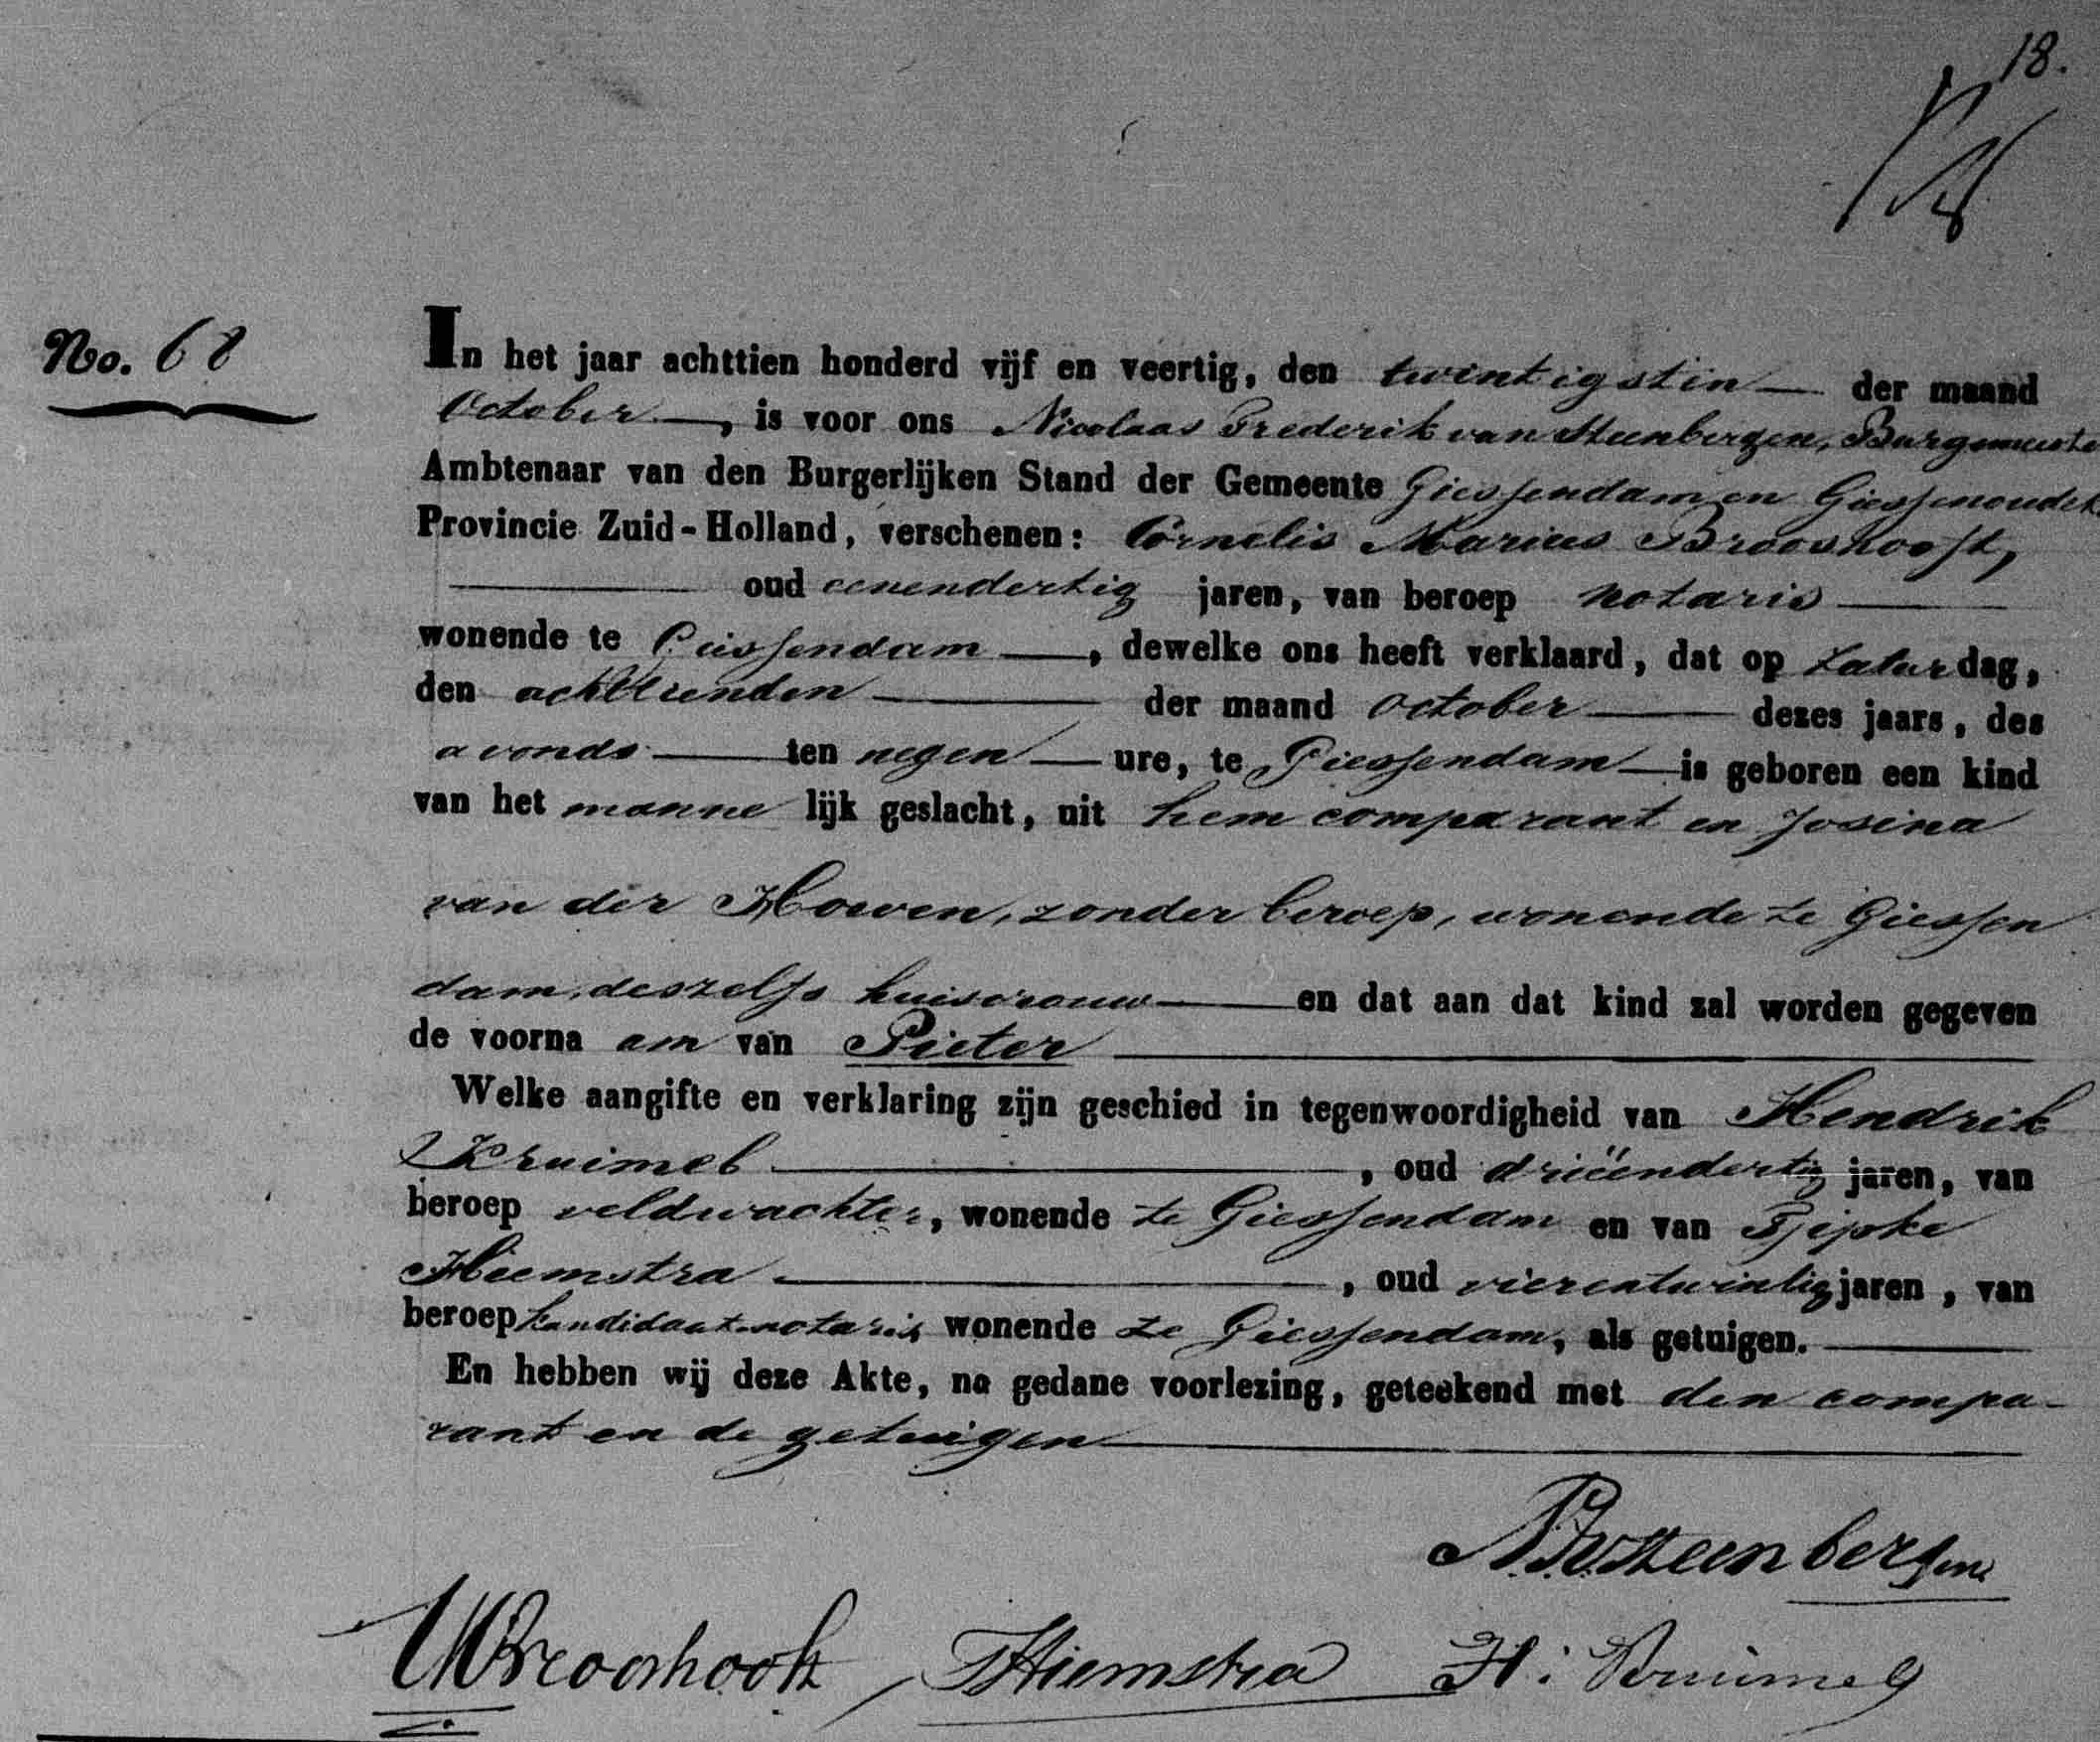 18.
No. 68
In het jaar achttien honderd vijf en veertig, den twintigsten der maand
October, is voor ons Nicolaas Frederik van Steenbergen, Burgemeester
Ambtenaar van den Burgerlijken Stand der Gemeente Giessendam en Giessenoudek
Provincie Zuid-Holland, verschenen: Cornelis Marius Brooshooft,
oud eenendertig jaren, van beroep notaris
wonende te Giessendam, dewelke ons heeft verklaard, dat op Zaturdag,
den achttienden der maand October dezes jaars, des
avonds ten negen ure, te Giessendam is geboren een kind
van het mannelijk geslacht, uit hem comparant en Josina
van der Hoeven, zonder beroep, wonende te Giessen
dam, deszelfs huisvrouw en dat aan dat kind zal worden gegeven
de voornaam van Pieter
Welke aangifte en verklaring zijn geschied in tegenwoordigheid van Hendrik
Kruimel, oud drieëndertig jaren, van
beroep veldwachter, wonende te Giessendam en van Tjipke
Hiemstra, oud vierentwintig jaren, van
beroep kandidaat-notaris wonende te Giessendam, als getuigen.
En hebben wij deze Akte, na gedane voorlezing, geteekend met den compa-
rant en de getuigen
NFvSteenbergen
CMBrooshooft THiemstra H: Kruimel